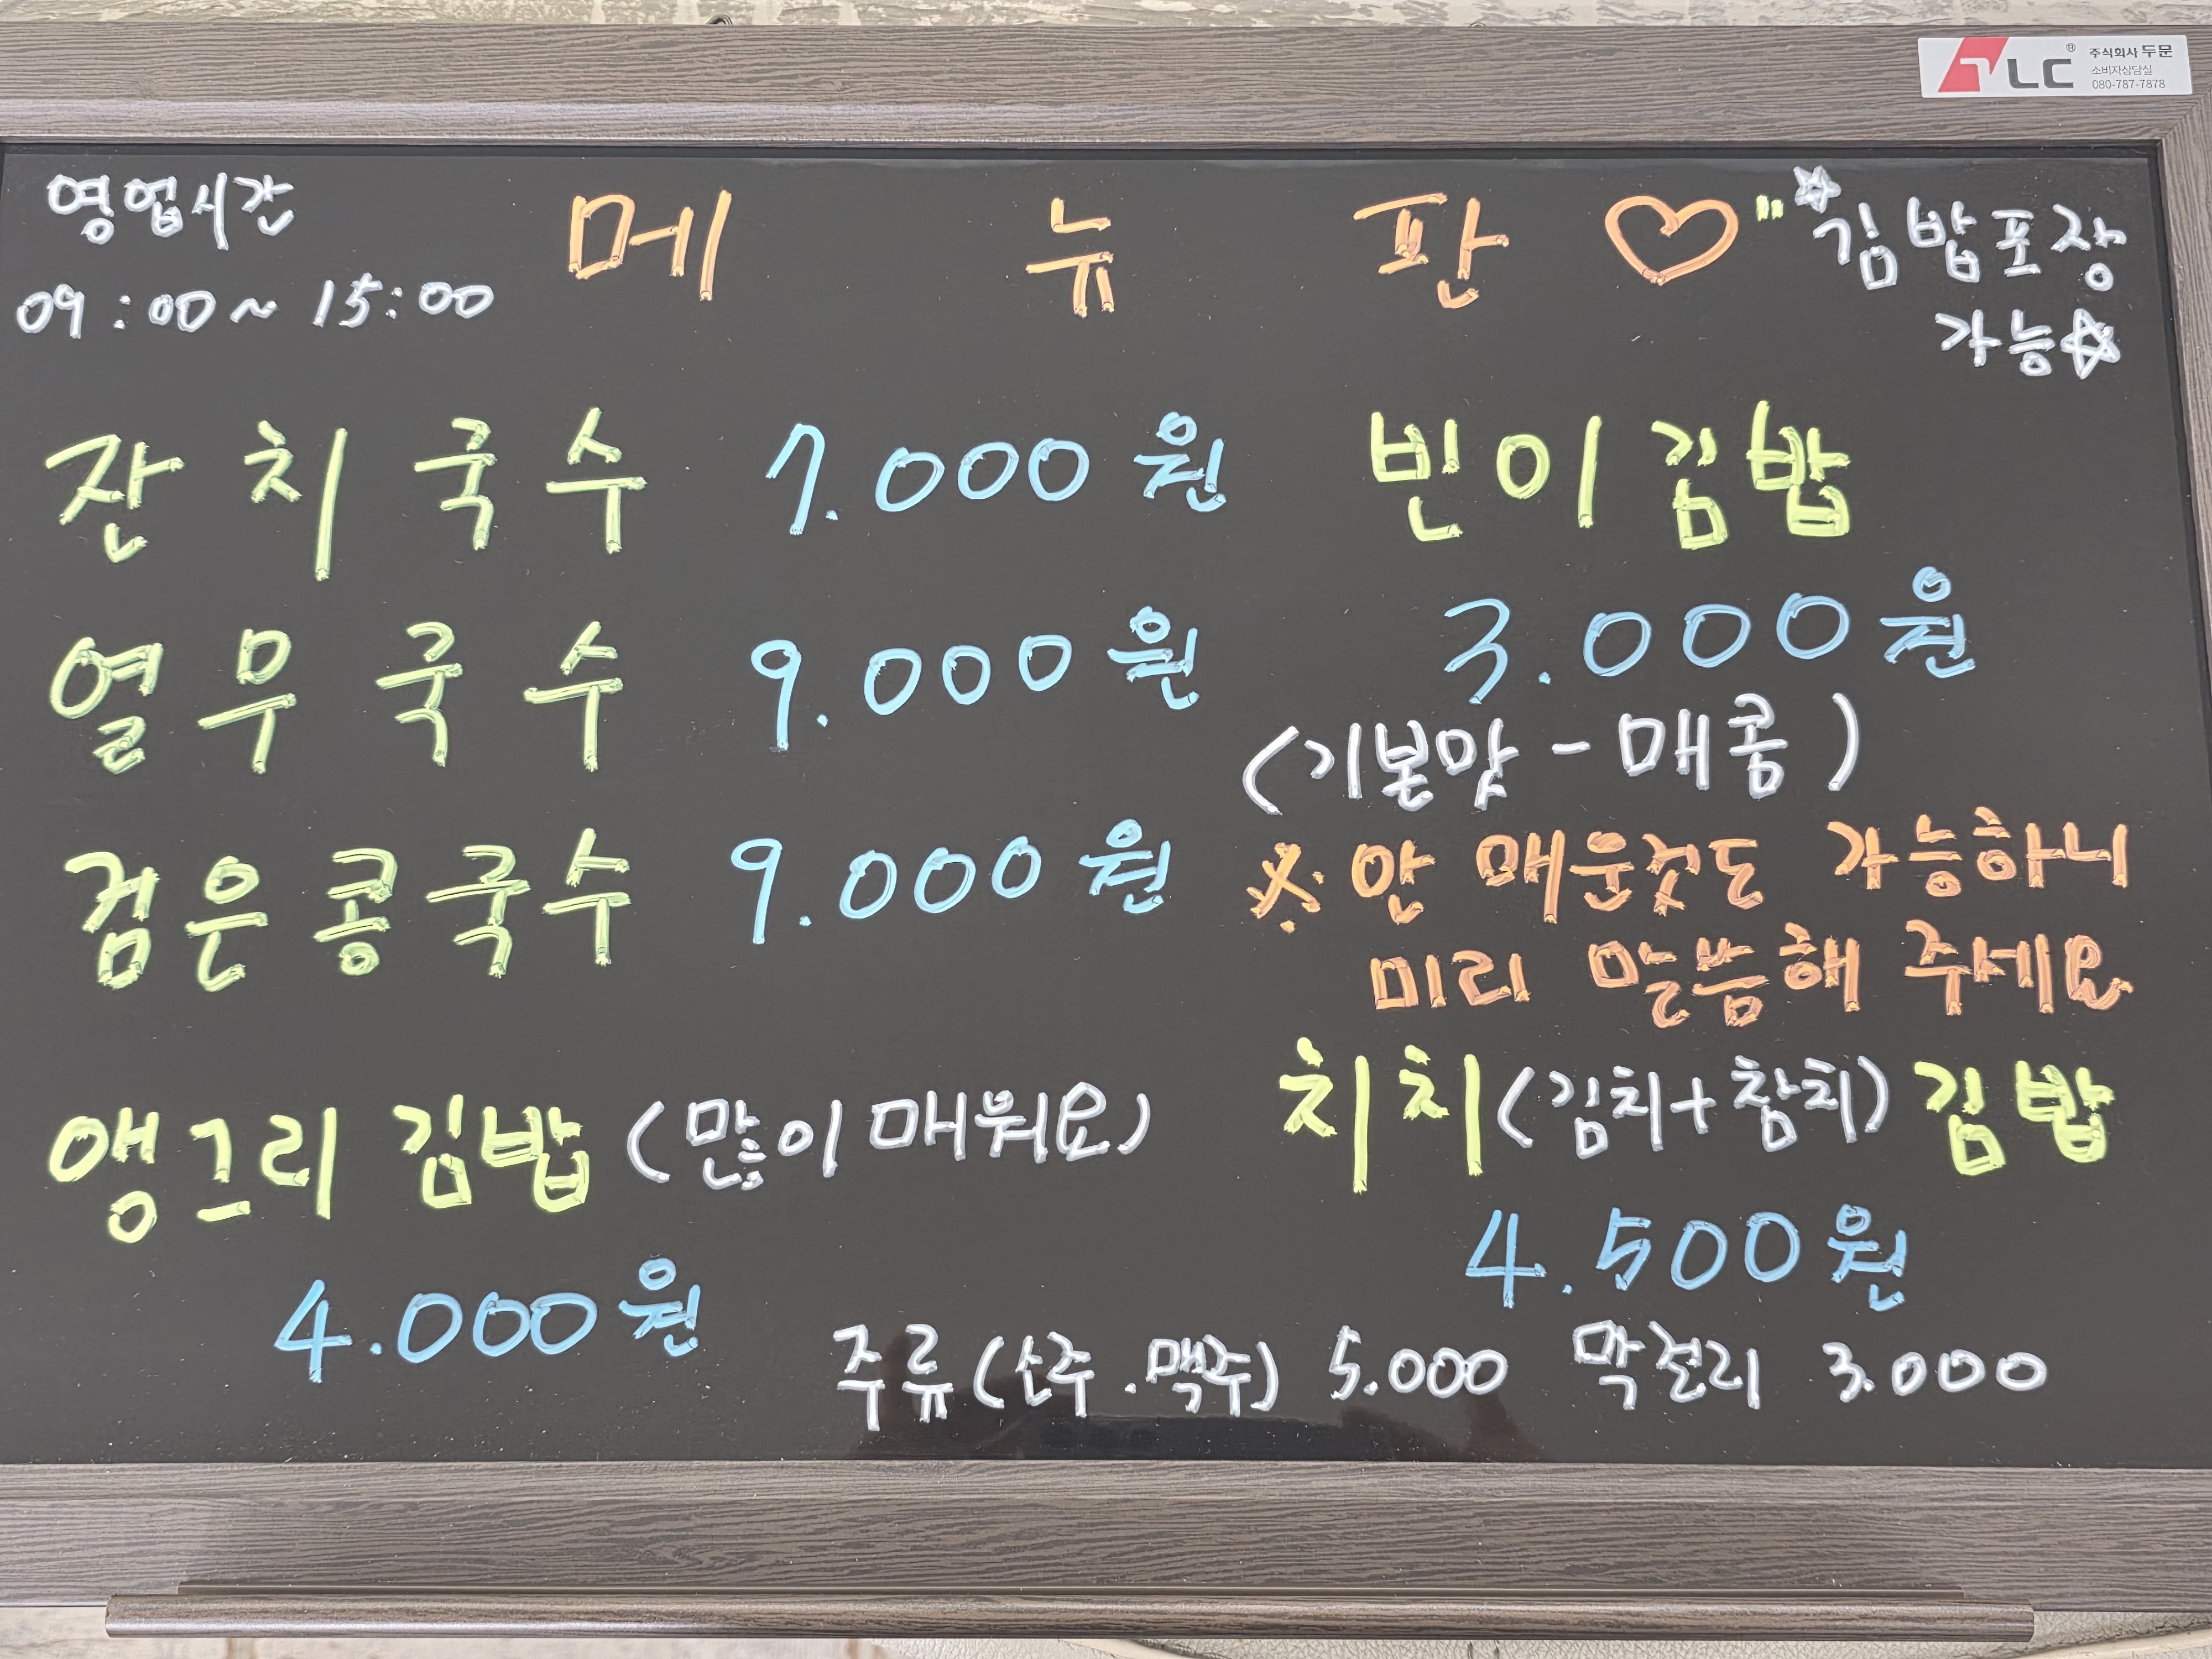 LC® 주식회사 두문
소비자상담실
080-787-7878
영업시간
09:00~15:00
메뉴판♡
☆김밥포장
가능☆
잔치국수 7.000원
열무국수 9.000원
검은콩국수 9.000원
빈이김밥
3.000원
(기본맛-매콤)
※안 매운것도 가능하니
미리 말씀해 주세요
앵그리 김밥 (많이 매워요)
4.000원
치치(김치+참치)김밥
4.500원
주류(소주.맥주) 5.000 막걸리 3.000